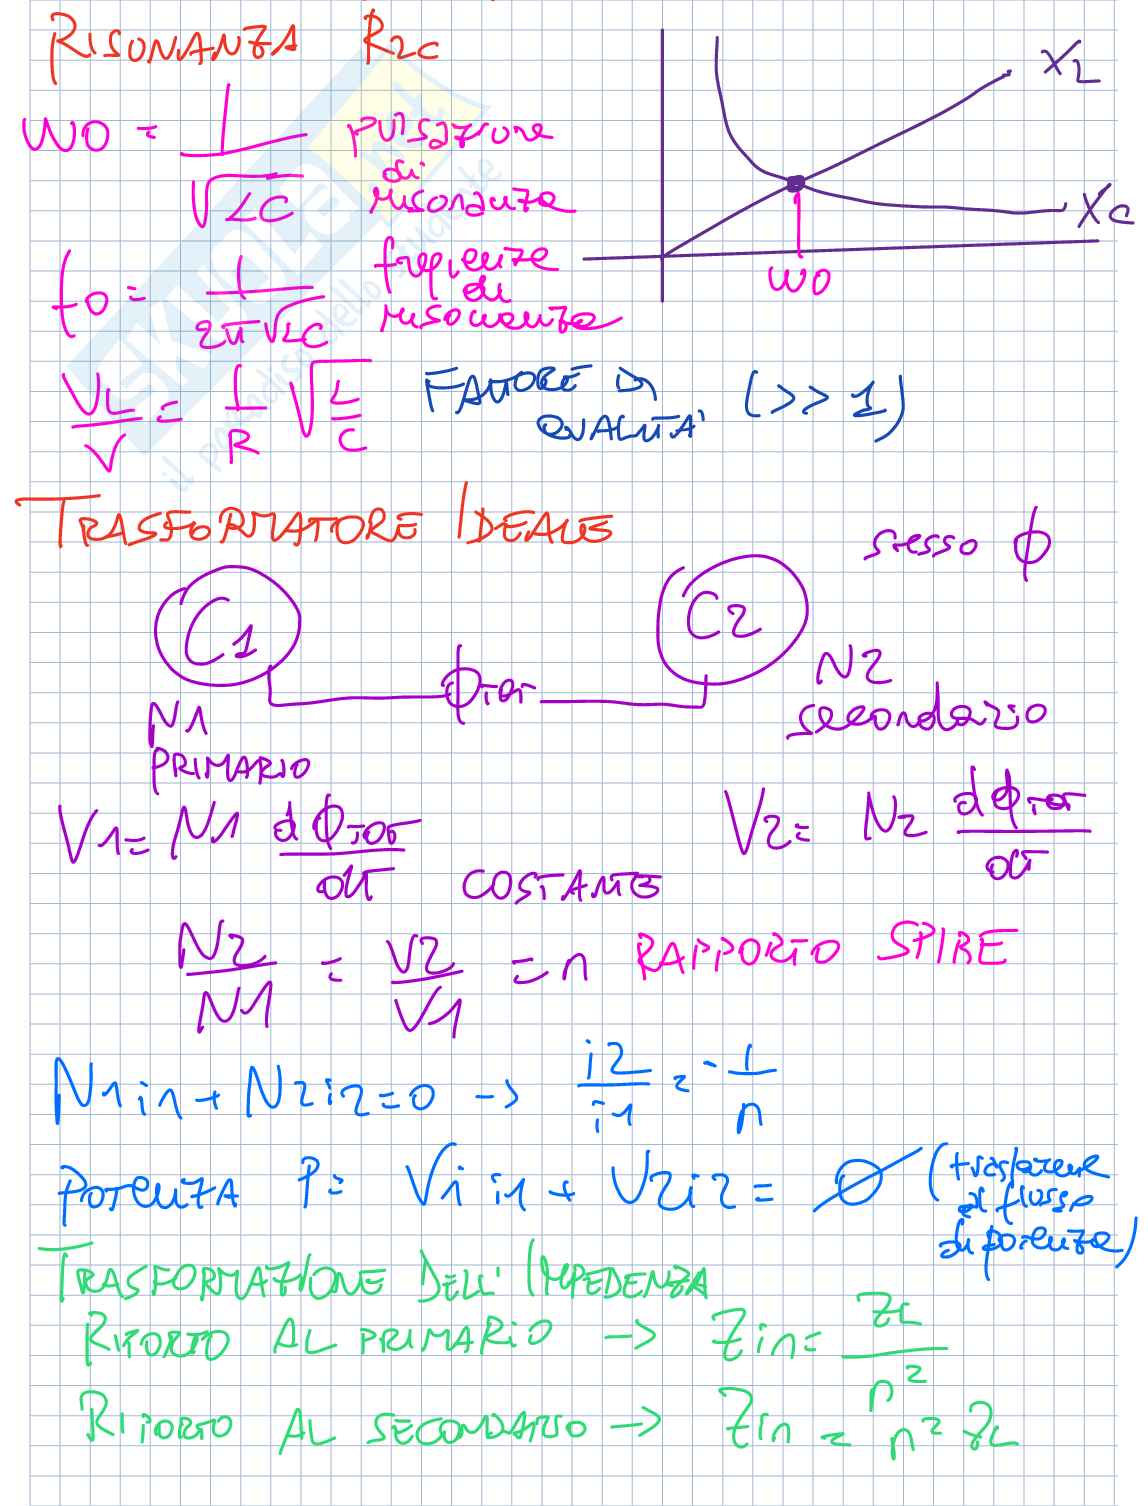 RISONANZA RLC
XL
ω0 = 1/√LC pulsazione di risonanza
XC
ω0
f0 = 1/2π√LC frequenza di risonanza
VL/V = 1/R √L/C FATTORE DI QUALITÀ (>> 1)
TRASFORMATORE IDEALE
stesso ϕ
C1
C2
ϕTOT
N1
PRIMARIO
N2
secondario
V1 = N1 dϕTOT/dt
V2 = N2 dϕTOT/dt
COSTANTE
N2/N1 = V2/V1 = n RAPPORTO SPIRE
N1 i1 + N2 i2 = 0 → i2/i1 = -1/n
POTENZA P = V1 i1 + V2 i2 = ∅ (trasparente al flusso di potenza)
TRASFORMAZIONE DELL'IMPEDENZA
RIPORTO AL PRIMARIO → Zin = ZL/n²
RIPORTO AL SECONDARIO → Zin = n² ZL
SKUOLA.net
il paradiso dello studente